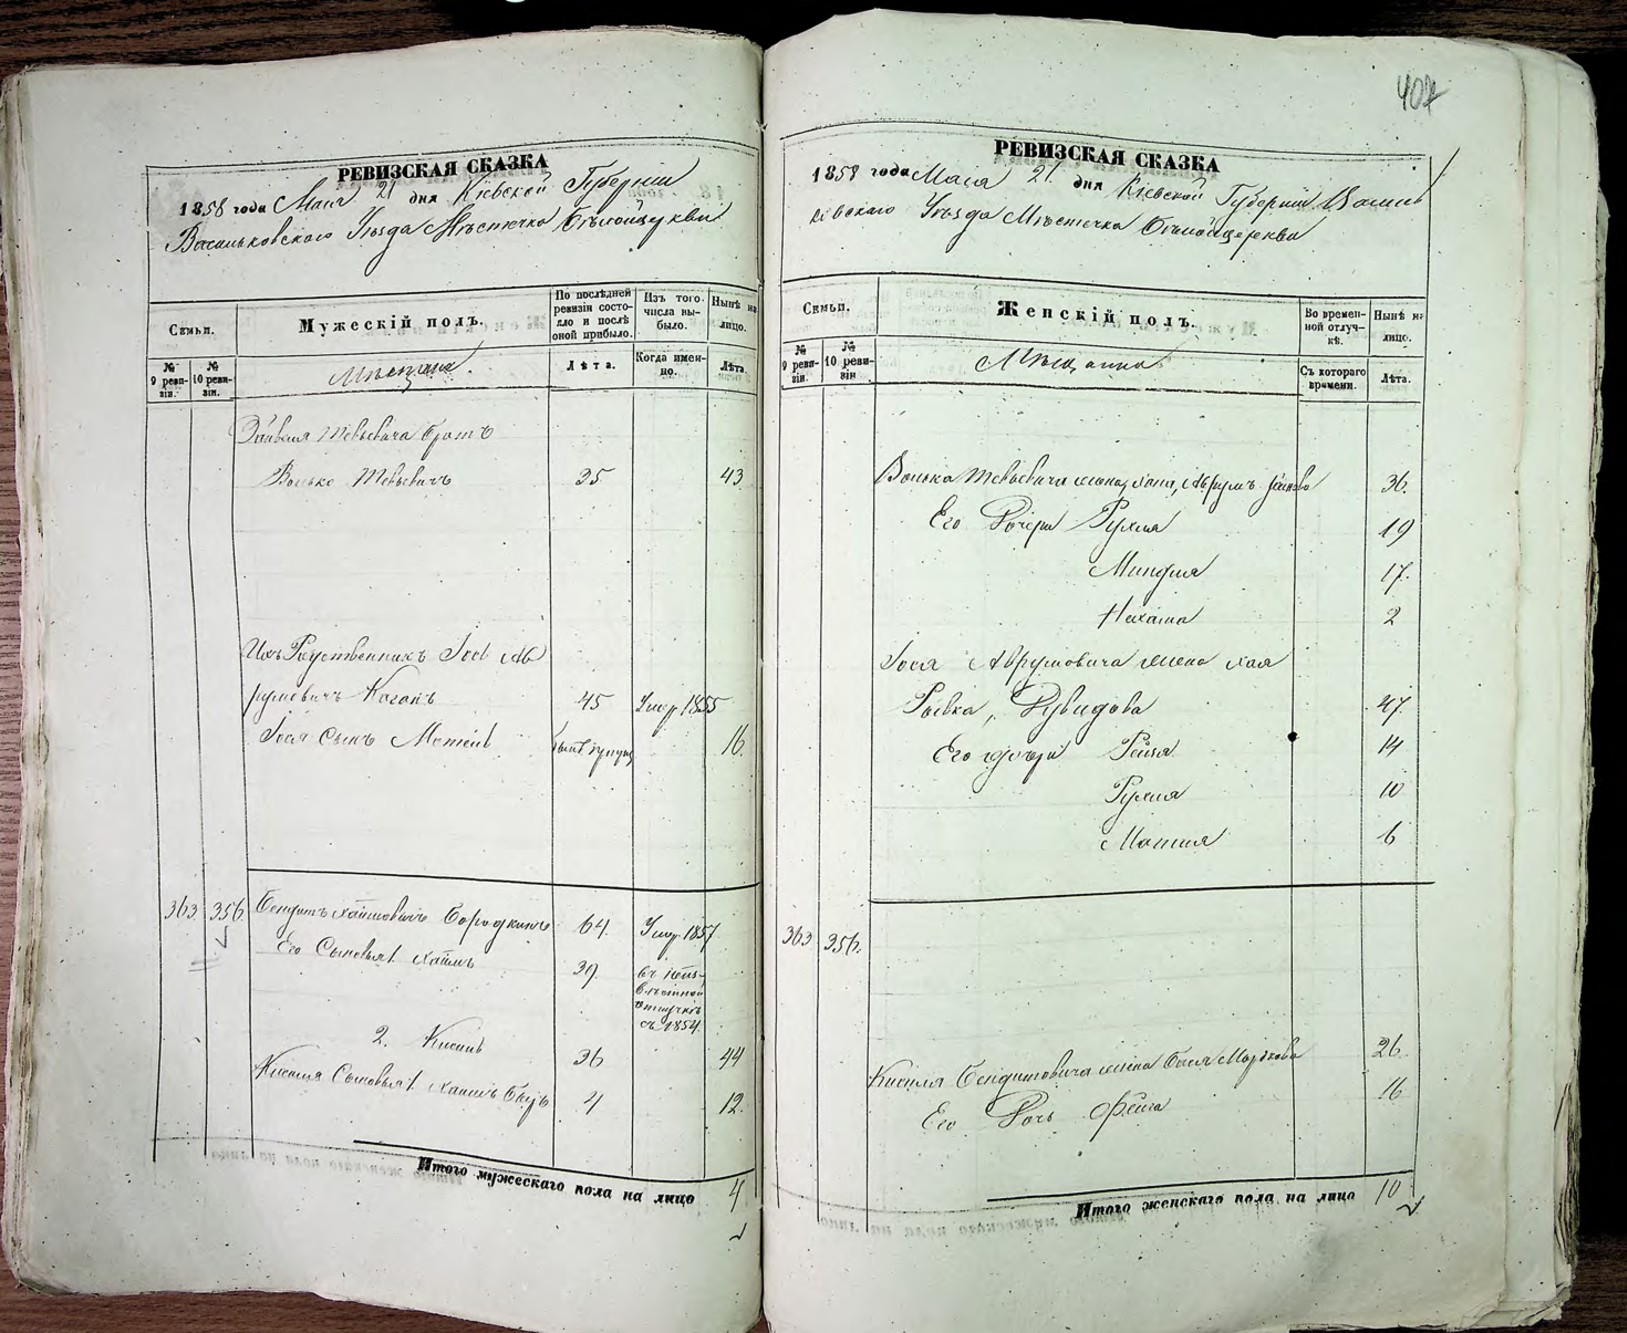 РЕВИЗСКАЯ СКАЗКА
1858 года Мая 21 дня Кіевской Губерніи
Васильковского Уѣзда Мѣстечка Бѣлойцеркви
Семьи.
Мужескій полъ.
По послѣдней ревизіи состояло и послѣ оной прибыло.
Изъ того числа выбыло.
Нынѣ на лицо.
№ 9 ревизіи.
№ 10 ревизіи.
Мѣщане.
Лѣта.
Когда именно.
Лѣта.
Тевьевича братъ
Волько Тевьевичъ 35 43
Ихъ Родственникъ Іось Ав
румовичъ Коганъ 45 Умер 1855
Іося Сынъ Мотель 16
363 356 Бендитъ Хаимовичъ Бородкинъ 64 Умер 1857
Его Сыновья 1. Хаимъ 39.
отлучкѣ
съ 1854.
2. Кисиль 36 44
Кисиля Сыновья 1. Хаимъ Беръ 4 12.
Итого мужескаго пола на лицо 4
407
РЕВИЗСКАЯ СКАЗКА
1858 года Мая 21 дня Кіевской Губерніи Василь
ковскаго Уѣзда Мѣстечка Бѣлойцеркви
Семьи.
Женскій полъ.
Во временной отлучкѣ.
Нынѣ на лицо.
№ 9 ревизіи.
№ 10 ревизіи
Мѣщанки
Съ котораго времени.
Лѣта.
Волька Тевьевича жена 36.
Его Дочери Рухля 19
Миндля 17.
Нехама 2
Іося Аврумовича жена Хая
Ривка, Дувидова 47.
Его дочери Рейзя 14
Рухля 10
Матля 6
363 356.
Кисиля Бендитовича жена Бася Мордкова 26.
Его Дочь Фейга 16
Итого женскаго пола на лицо 10